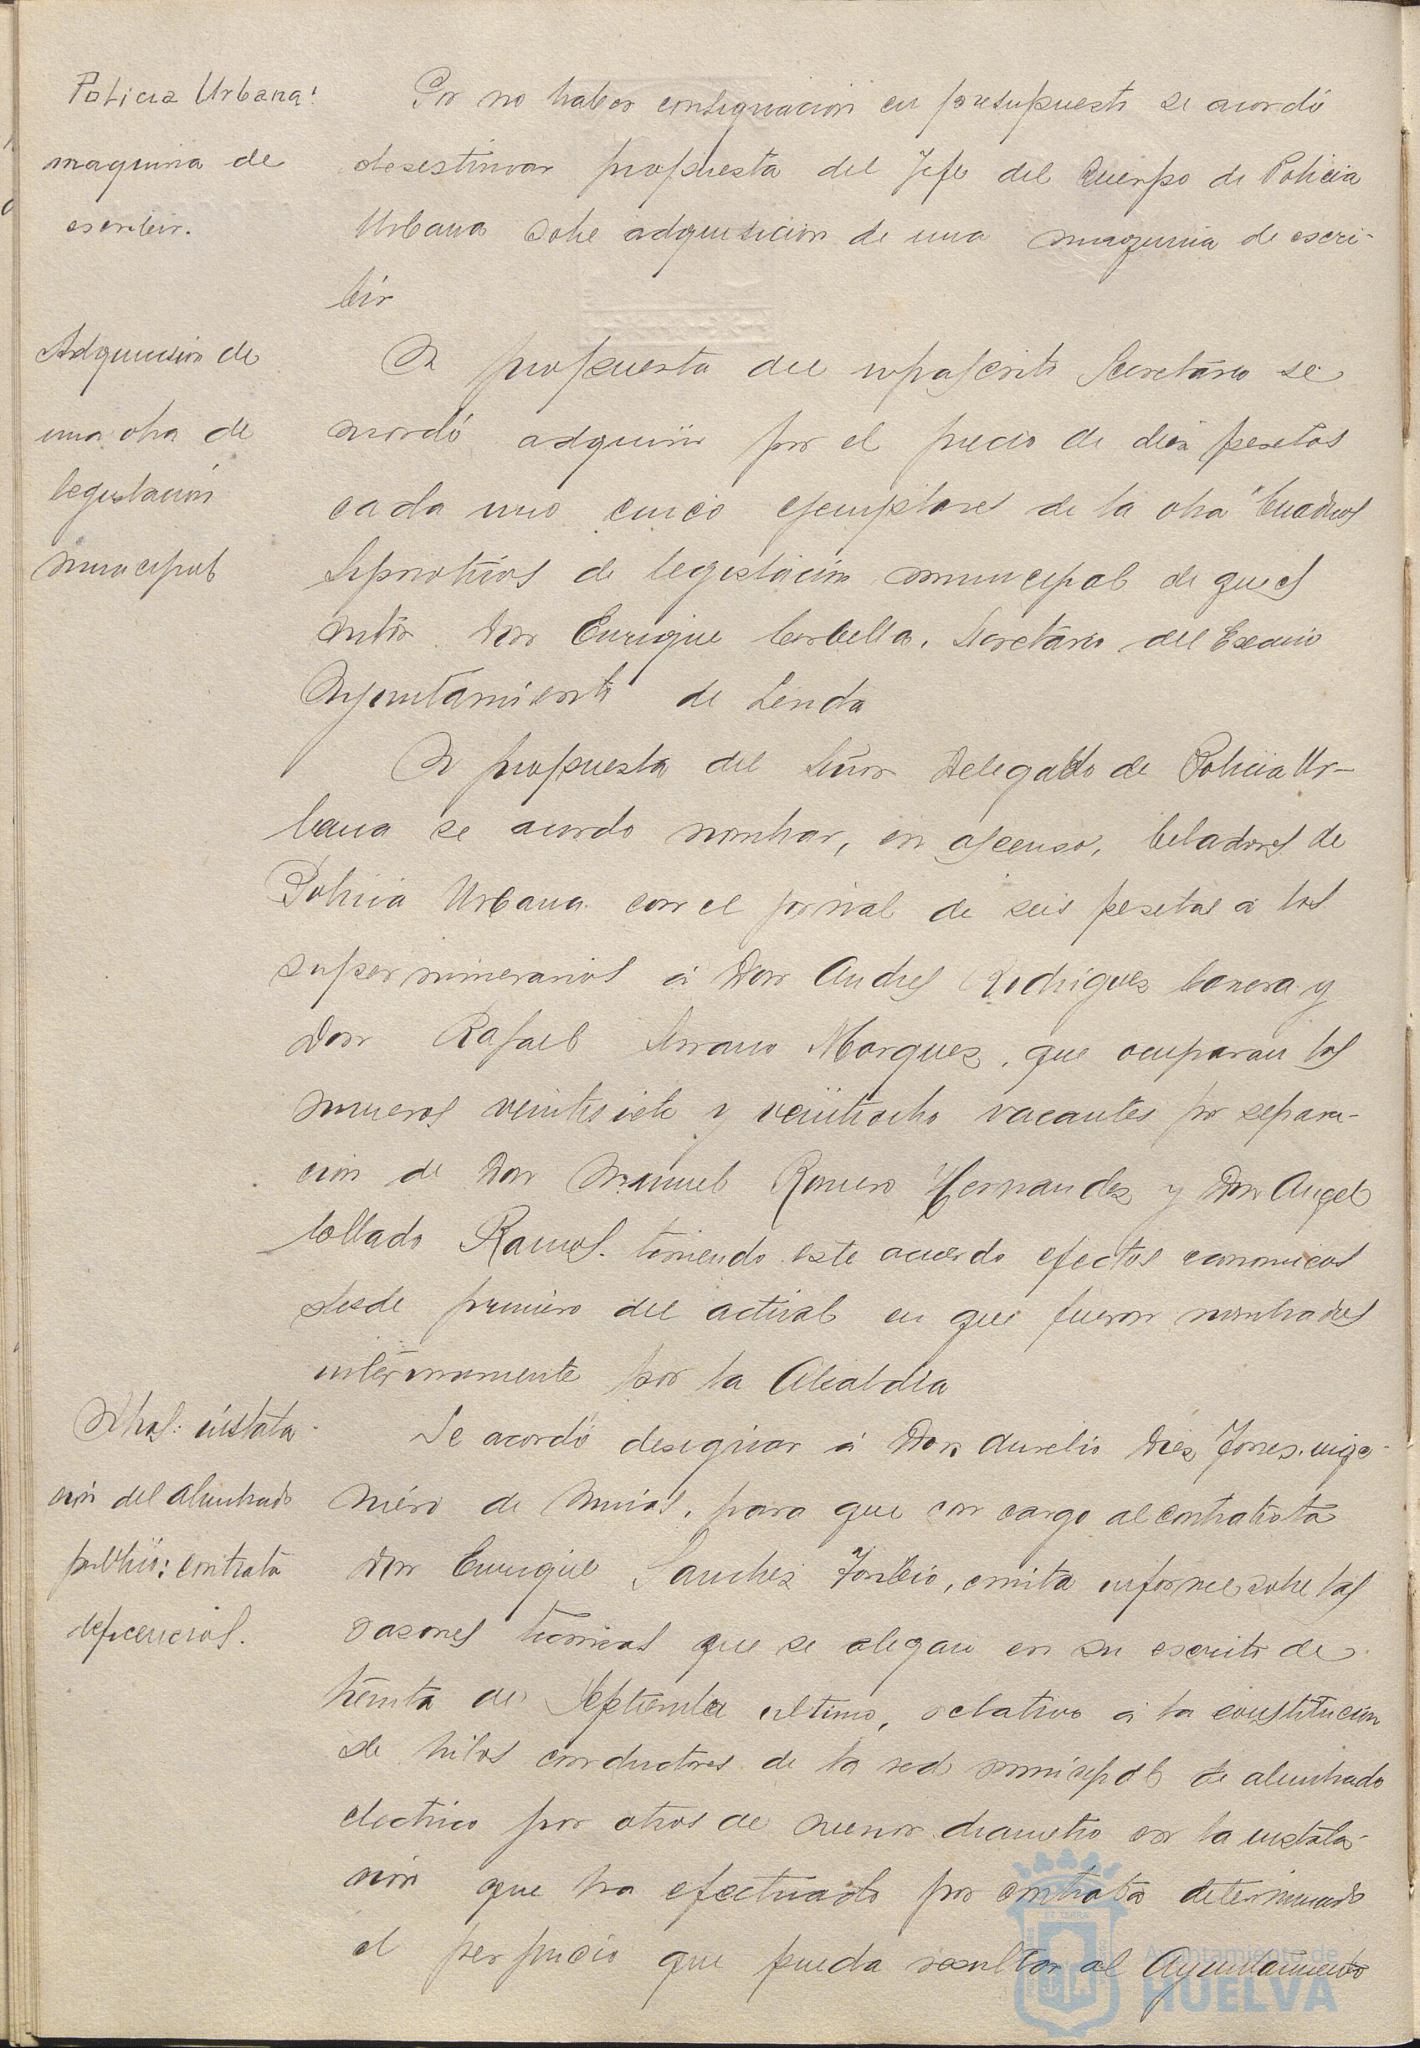 Policia Urbana:
maquina de
escribir.
Por no haber consignacion en presupuesto se acordó
desestimar propuesta del Jefe del Cuerpo de Policia
Urbana sobre adquisicion de una maquina de escri-
bir
Adquisicion de
una obra de
legislacion
municipal
A propuesta del infrascrito Secretario se
acordó adquirir por el precio de diez pesetas
cada uno cinco ejemplares de la obra "Cuadros
Sipnoticos de legislación municipal de que es
autor Don Enrique Corbella, Secretario del Excmo
Ayuntamiento de Lerida
A propuesta del Señor Delegado de Policia Ur-
bana se acordo nombrar, en ascenso, Celadores de
Policia Urbana con el jornal de seis pesetas a los
supernumerarios á Don Andres Rodriguez y
Don Rafael Serrano Marquez, que ocuparan los
numeros veintisiete y veintiocho vacantes por separa-
cion de Don Manuel Romero Hernandez y Don Angel
Collado Ramos. teniendo este acuerdo efectos economicos
desde primero del actual en que fueron nombrados
interinamente por la Alcaldia
Obras: instala
ción del alumbrado
publico: contrata
deficencias.
Se acordó designar á Don Aurelio Diez Torres, inge-
niero de Minas, para que con cargo al contratista
Don Enrique Sanchez Toribio, emita informe sobre las
razones tecnicas que se alegan en su escrito de
treinta de Septiembre ultimo, relativo a la constitucion
de hilos conductores de la red municipal de alumbrado
electrico por otros de menor diametro en la instala-
ción que ha efectuado por contrata determinando
el perjuicio que pueda resultar al Ayuntamiento
Ayuntamiento de
HUELVA